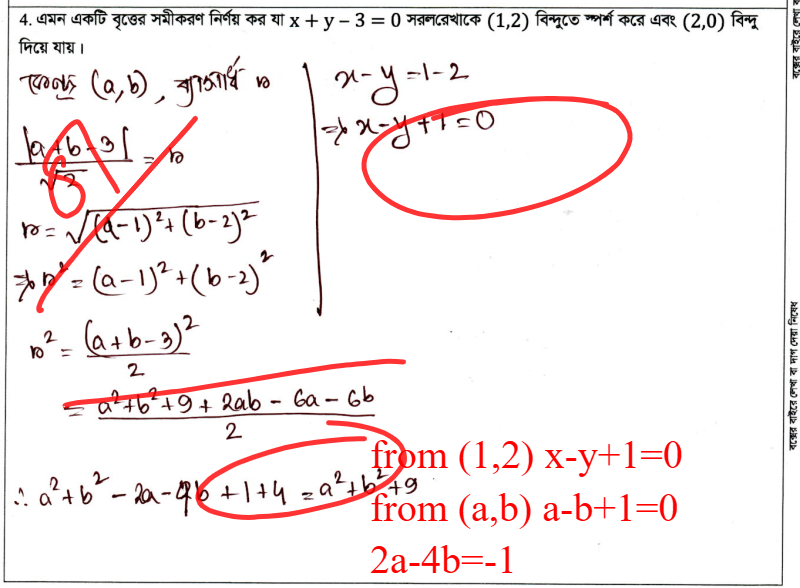 4. এমন একটি বৃত্তের সমীকরণ নির্ণয় কর যা x + y − 3 = 0 সরলরেখাকে (1,2) বিন্দুতে স্পর্শ করে এবং (2,0) বিন্দু
দিয়ে যায়।
কেন্দ্র (a, b), ব্যাসার্ধ r
|a+b-3| / √2 = r
r = √((a-1)²+(b-2)²)
⇒ r² = (a-1)²+(b-2)²
r² = (a+b-3)² / 2
= (a²+b²+9+2ab-6a-6b) / 2
∴ a²+b²-2a-4b+1+4 = a²+b²+9
x-y=1-2
⇒ x-y+1=0
from (1,2) x-y+1=0
from (a,b) a-b+1=0
2a-4b=-1
বক্সের বাইরে লেখা বা দাগ দেয়া নিষেধ